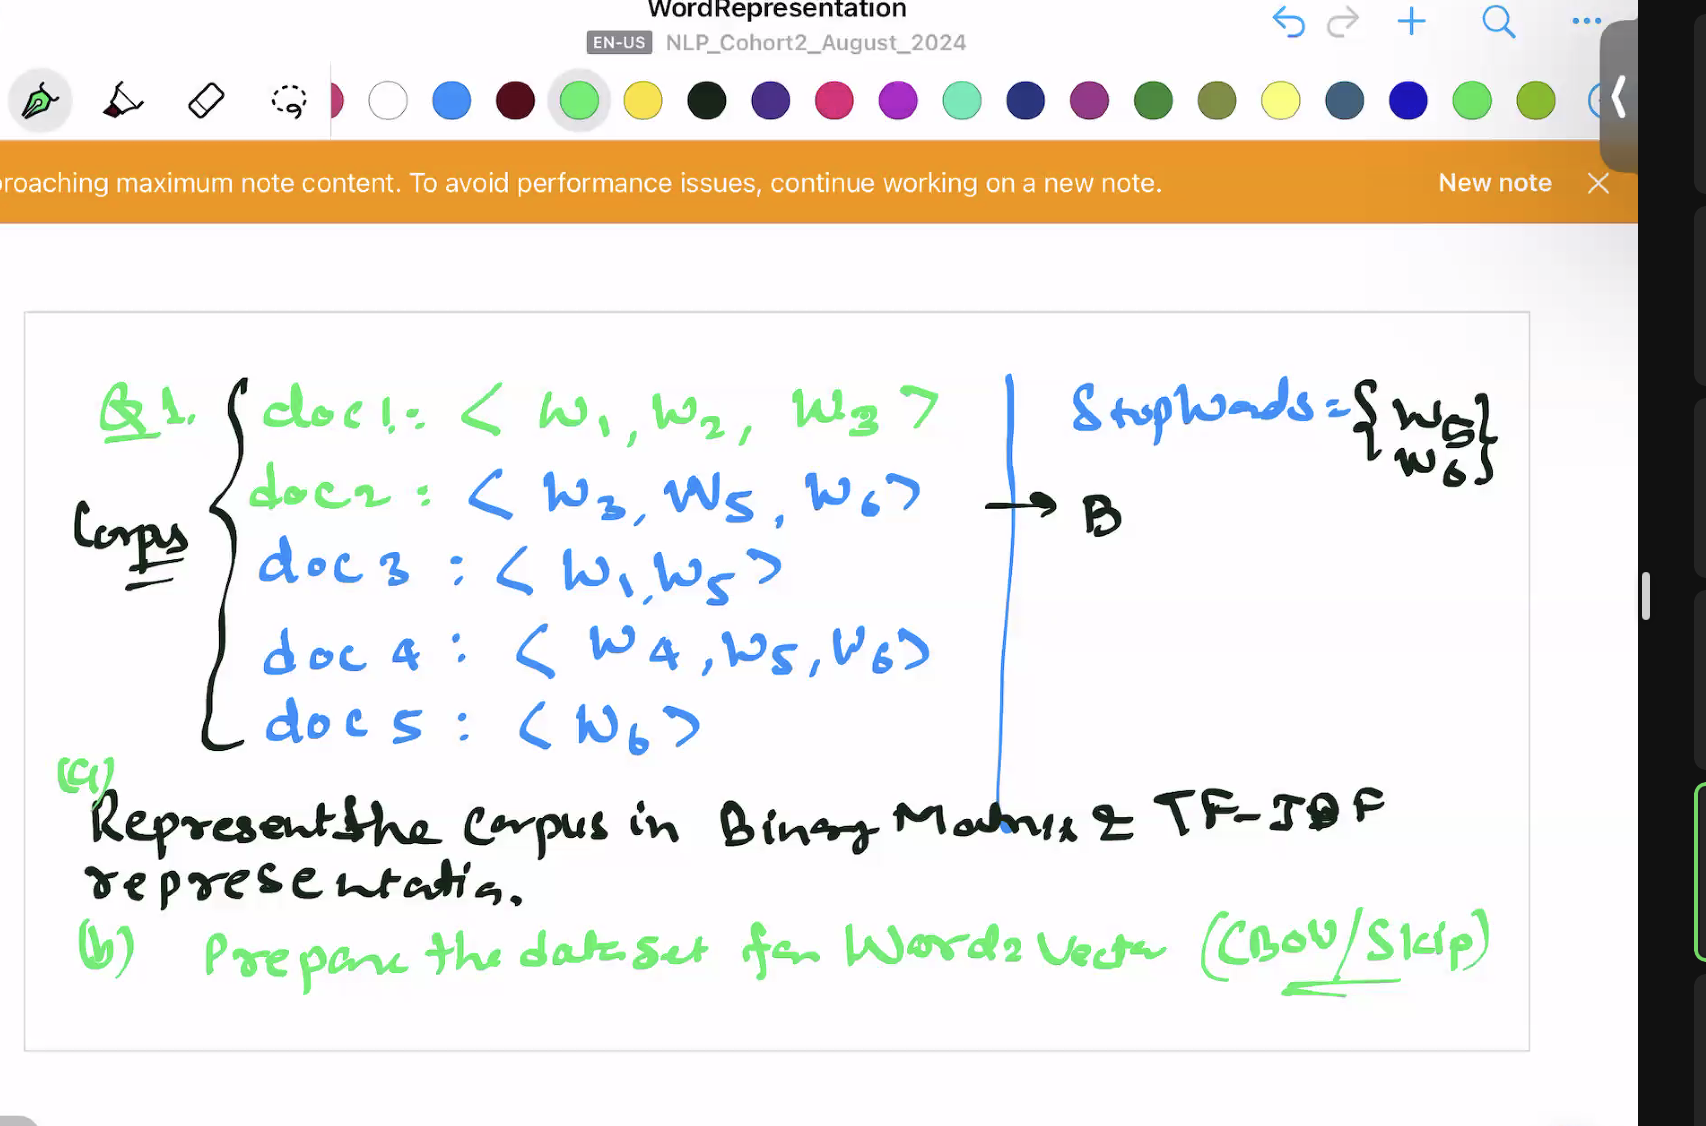 WordRepresentation
EN-US NLP_Cohort2_August_2024
roaching maximum note content. To avoid performance issues, continue working on a new note. New note
Q1. doc1: < W1, W2, W3 >
StopWords = { W5
W6 }
doc2 : < W3, W5, W6 >
→ B
Corpus
doc 3 : < W1, W5 >
doc 4 : < W4, W5, W6 >
doc 5 : < W6 >
(a)
Represent the Corpus in Binary Matrix & TF-IDF
representation.
(b) Prepare the dataset for Word2Vector (CBOW/Skip)